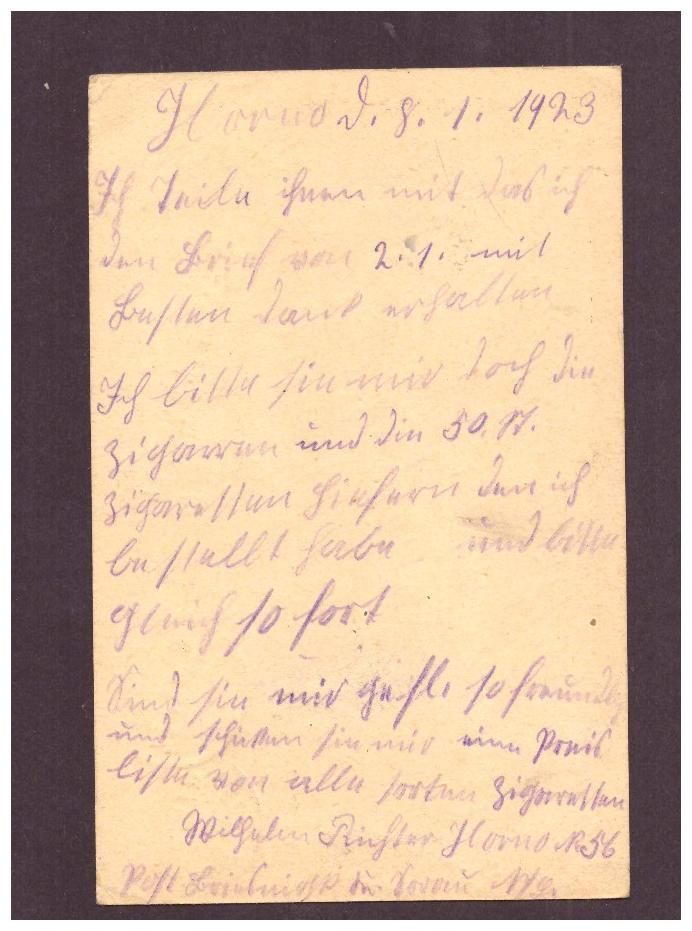 Horno d. 8. 1. 1923
Ich Teile ihnen mit das ich
den Brief von 2. 1. mit
Besten dank erhalten
Ich bitte sie mir doch die
Zigarren und die 50. St.
Zigaretten liefern den ich
bestellt habe und bitte
gleich so fort
Sind sie mir gefl. so freundlig
und schicken sie mir eine Preis
liste von alle sorten Zigaretten
Wilhelm Richter Horno N. 56
Post Sorau N/L.